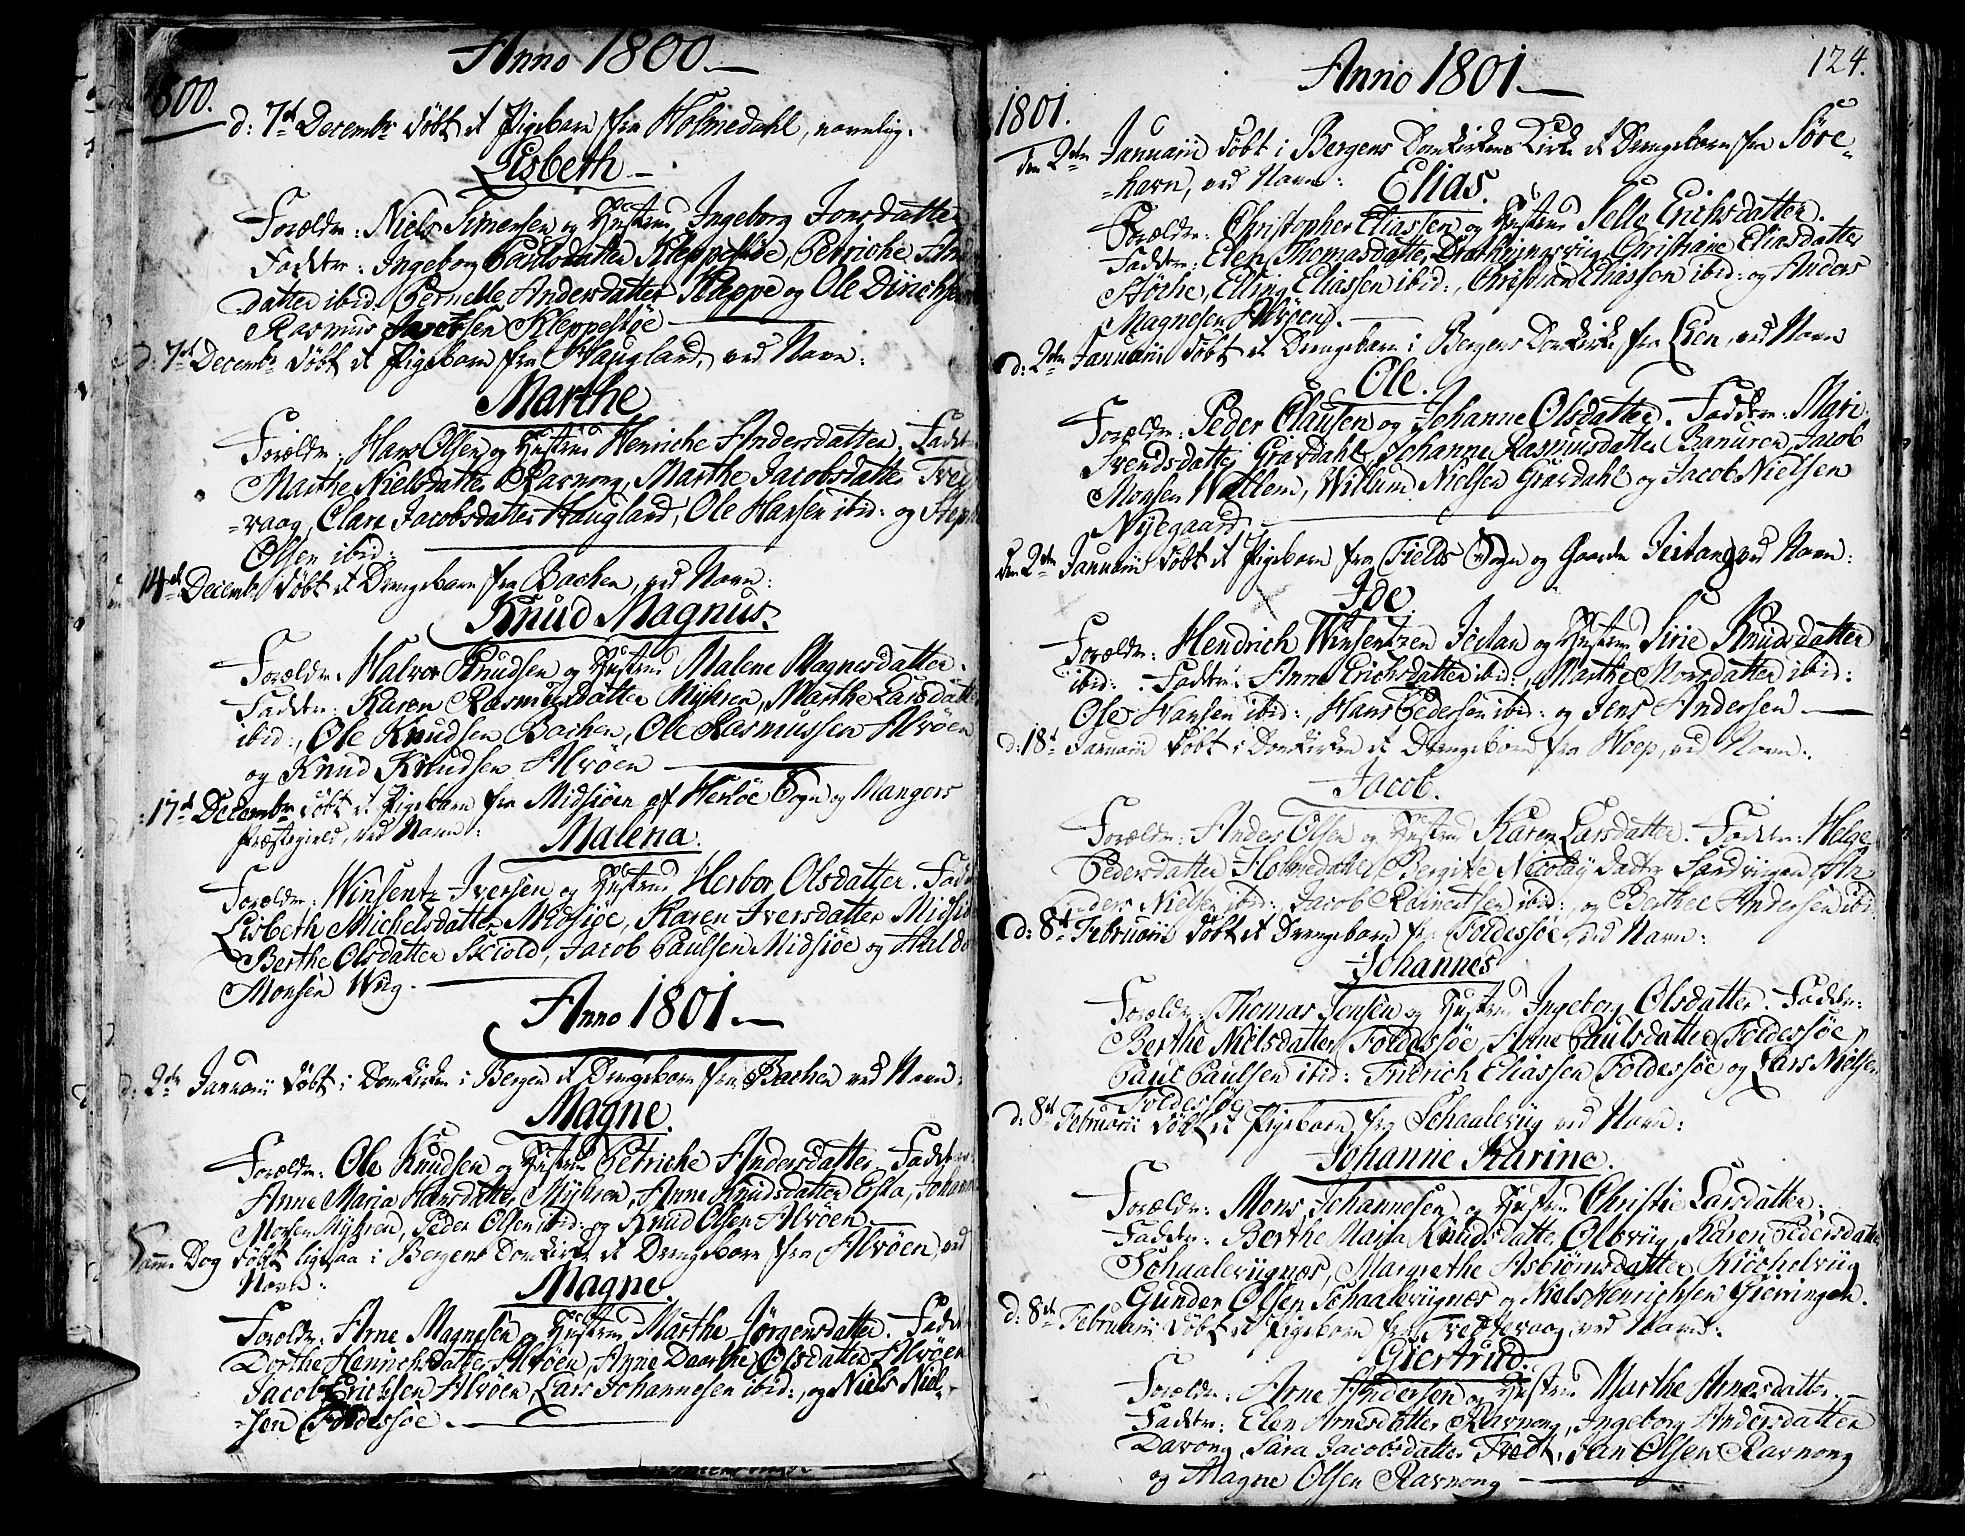 Anno 1800.
1800.
d: 7de Decembr døbt et Pigebarn fra Holmedahl, navnlig.
Lisbeth
Forældre: Niels Simensen og Hustrue Ingeborg Jonsdatter
Faddere: Ingeborg Paulsdatter Kleppesøe, Petriche
datter ibid: Pernelle Andersdatter Kleppe og Ole
Rasmus Kleppesøe
d: 7de Decembr døbt et Pigebarn fra Haugland, ved Navn:
Marthe
Forældre: Hans Olsen og Hustrue Henriche Andersdatter. Fadder
Marthe Nielsdatter Ravnong, Marthe Jacobsdatter Tvet
=vaag, Clara Jacobsdatter Haugland, Ole Hansen ibid: og
Olsen ibid:
14de Decembr døbt et Drengebarn fra Bachen, ved Navn:
Knud Magnus.
Forældre: Halvor Knudsen og Hustrue Malene Magnesdatter.
Faddere: Karen Rasmusdatter Myhren, Marthe Larsdatter
ibid:, Ole Knudsen Bachen, Ole Rasmussen Alvøen
og Knud Knudsen Alvøen
17de Decembr døbt et Pigebarn fra Midsiøen af Herløe Sogn og Mangers
Præstegield, ved Navn:
Malena.
Forældre: Winsentz Iversen og Hustrue Herbor Olsdatter.
Lisbeth Michelsdatter Midsiøe, Karen Iversdatter
Berthe Olsdatter Skiold, Jacob Paulsen Midsiøe og
Monsen Wiig.
Anno 1801.
d: 2den Januarii døbt i Domkirken i Bergen et Drengebarn fra Bachen ved Navn:
Magne.
Forældre: Ole Knudsen og Hustrue Petriche Andersdatter. Faddere
Anne Maria Hansdatter Myhren, Anne Knudsdatter
Monsen Myhren, Peder Olsen ibid: og Knud Olsen Alvøen.
Samme Dag døbt ligesaa i Bergens Domkirke et Drengebarn fra Alvøen, ved
Navn:
Magne.
Forældre: Arne Magnesen og Hustrue Marthe Jørgensdatter.
Dorthe Henrichsdatter Alvøen, Anne Dorthe Olsdatter Alvøen
Jacob Erichsen Alvøen, Lars Johannesen ibid:, og Niels Niel=
=sen Foldessøe.
Anno 1801.
124.
1801.
den 2den Januarii døbt i Bergens Domkirkens Kirke et Drengebarn fra Søre=
=havn, ved Navn:
Elias.
Forældre: Christopher Eliassen og Hustrue Selle Erichsdatter.
Faddere: Elen Thomasdatter Christiane Eliasdatter
Elling Eliassen ibid:, Christian Eliassen ibid: og Anders
Magnesen Alvøen.
d: 2den Januarii døbt et Drengebarn i Bergens Domkirke fra Lien, ved Navn
Ole.
Forældre: Peder Clausen og Johanne Olsdatter. Faddere: Mari
Svendsdatter Gravdahl, Johanne Rasmusdatter Jacob
Monsen Wallem, Willum Nielsen Gravdahl og Jacob Nielsen
Nyegaard.
den 2den Januarii døbt et Pigebarn fra Fields Sogn og Gaarden ved Navn:
Ide
Forældre: Hendrich Winsentzen og Hustrue Sirie Knudsdatter
ibid: Faddere: Anne Erichsdatter ibid:, Marthe Monsdatter ibid:
Ole Hansen ibid:, Hans Pedersen ibid: og Jens Andersen
d: 18de Januarii døbt i Domkirken et Drengebarn fra Hop, ved Navn:
Jacob.
Forældre: Anders Olsen og Hustrue Karen Larsdatter. Faddere: Helge
Pedersdatter Holmedahl, Bergite Nicolay Datter Sandviigen,
Nielsen ibid:, Jacob ibid:, og Berthel Andersen ibid:
d: 8de Februarii døbt et Drengebarn fra Foldessøe ved Navn:
Johannes
Forældre: Thomas Jonsen og Hustrue Ingeborg Olsdatter. Faddere:
Berthe Nielsdatter Foldessøe, Anne Paulsdatter Foldessøe,
Paul Paulsen ibid: Fridrich Eliassen Foldessøe og Lars Nielsen
Foldessøe.
d: 8de Februarii døbt et Pigebarn fra Schaaleviig ved Navn:
Johanne Karine.
Forældre: Mons Johannesen og Hustrue Christie Larsdatter.
Faddere: Berthe Maria Knudsdatter Olsviig, Karen Pedersdatter
Schaaleviignæs, Margrethe Asbiørnsdatter Kiøchelviig
Gunder Olsen Schaaleviignæs og Niels Henrichsen Gierringen.
d: 8de Februarii døbt et Pigebarn fra Tvetevaag, ved Navn:
Giertrud.
Forældre: Arne Andersen og Hustrue Marthe Arnesdatter.
Faddere: Elen Arnesdatter Ravnong, Ingeborg Andersdatter
Davong, Sara Jacobsdatter Tvedt, Jan Olsen Ravnong
og Magne Olsen Ravnong